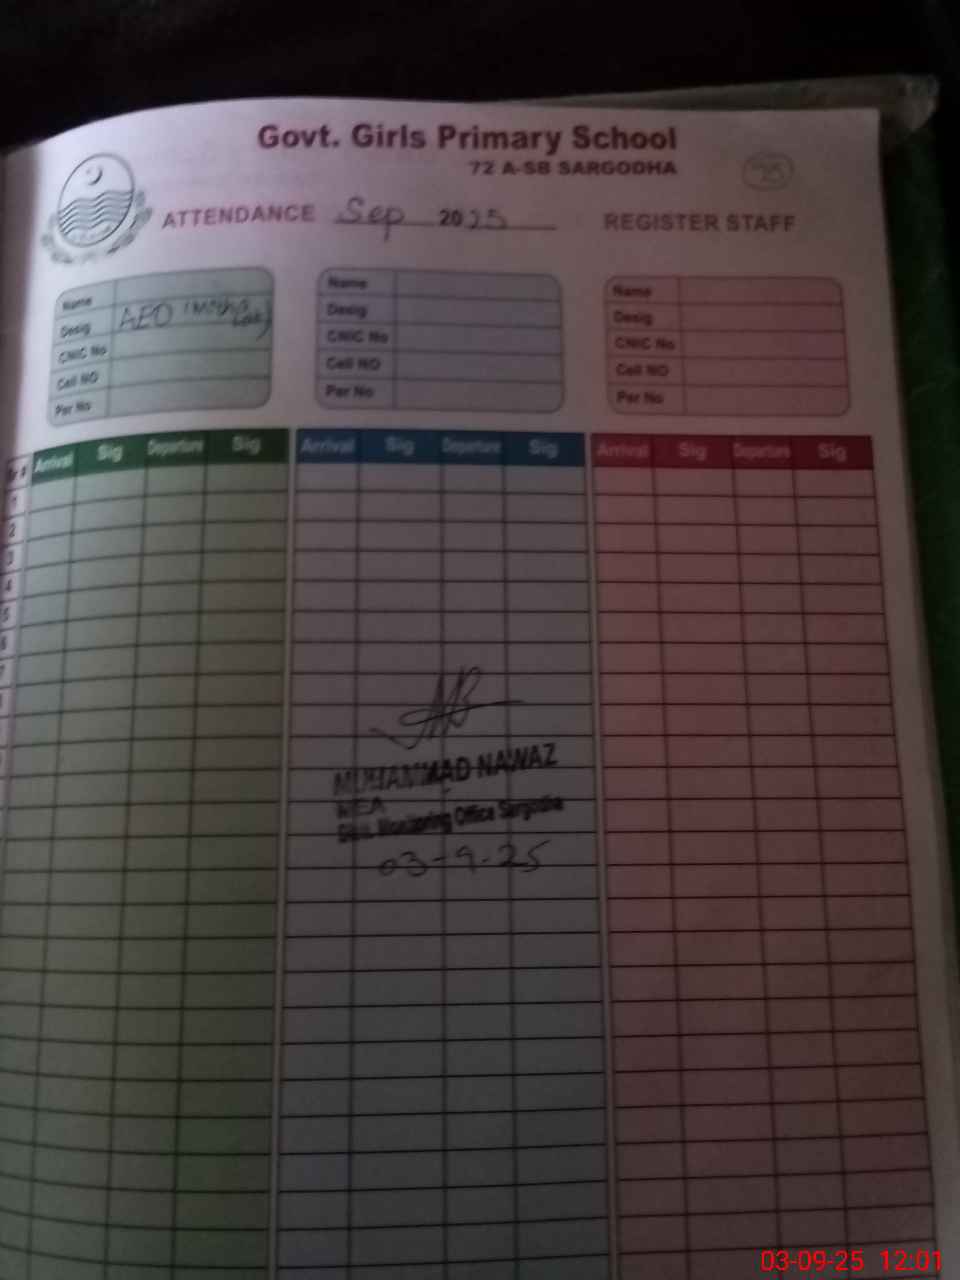 Govt. Girls Primary School
72 A-SB SARGODHA
75
ATTENDANCE Sep 2025 REGISTER STAFF
Name
Desig AEO
CNIC No
Cell NO
Per No
Name
Desig
CNIC No
Cell NO
Per No
Name
Desig
CNIC No
Cell NO
Per No
Sr # Arrival Sig Departure Sig Arrival Sig Departure Sig Arrival Sig Departure Sig
1
2
3
4
5
6
7
MUHAMMAD NAWAZ
MEA
Distt. Monitoring Office Sargodha
03-9-25
03-09-25 12:01